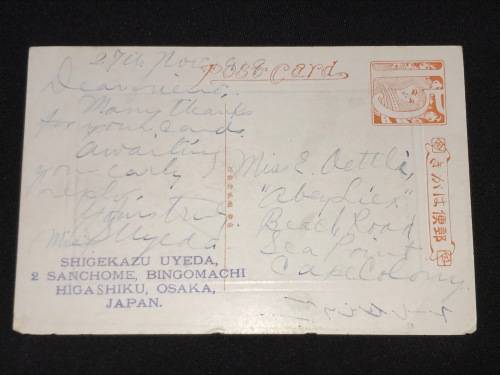 27th Nov.
Post Card
Dear friend.
Many thanks
for your card.
Awaiting
your early
reply.
Yours truly
Uyeda
SHIGEKAZU UYEDA,
2 SANCHOME, BINGOMACHI
HIGASHIKU, OSAKA,
JAPAN.
Miss E. Oettle,
Beach Road
Sea Point
Cape Colony
きかは便郵